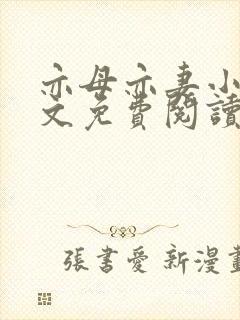 亦母亦妻小
文免費閱讀
張書愛 新漫畫